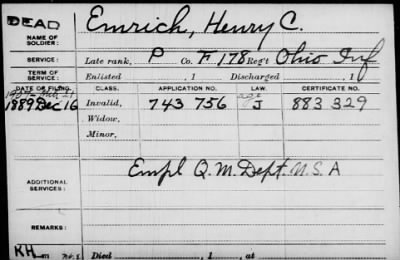 DEAD
NAME OF SOLDIER: Emrich, Henry C.
SERVICE: Late rank, P Co. F 178 Reg't Ohio Inf
TERM OF SERVICE: Enlisted , 1 Discharged , 1
DATE OF FILING. CLASS. APPLICATION NO. LAW. CERTIFICATE NO.
1889 Dec 16 Invalid, 743 756 J 883 329
Widow,
Minor,
ADDITIONAL SERVICES: Empl Q. M. Dept. U.S.A
REMARKS:
KH
Died , 1 , at